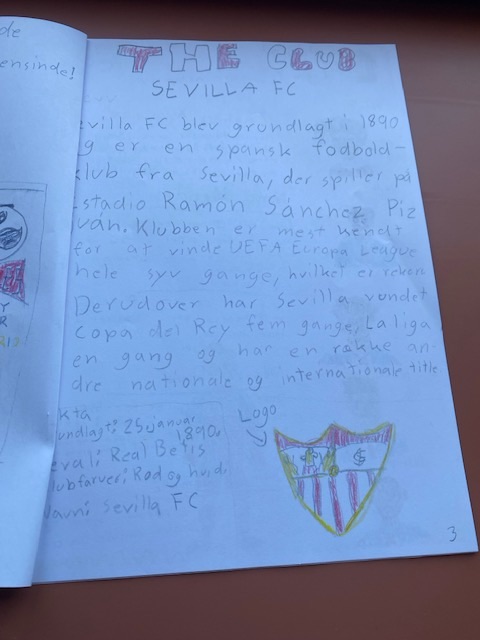 ensinde!
THE CLUB
SEVILLA FC
evilla FC blev grundlagt i 1890
g er en spansk fodbold-
klub fra Sevilla, der spiller på
Estadio Ramón Sánchez Piz
juán. Klubben er mest kendt
for at vinde UEFA Europa League
hele syv gange, hvilket er rekord
Derudover har Sevilla vundet
Copa del Rey fem gange, La liga
en gang og har en række an-
dre nationale og internationale title
kta
undlagt: 25 januar
1890.
eval: Real Betis
lubfarver: Rød og hvid.
Navn: Sevilla FC
Logo
3